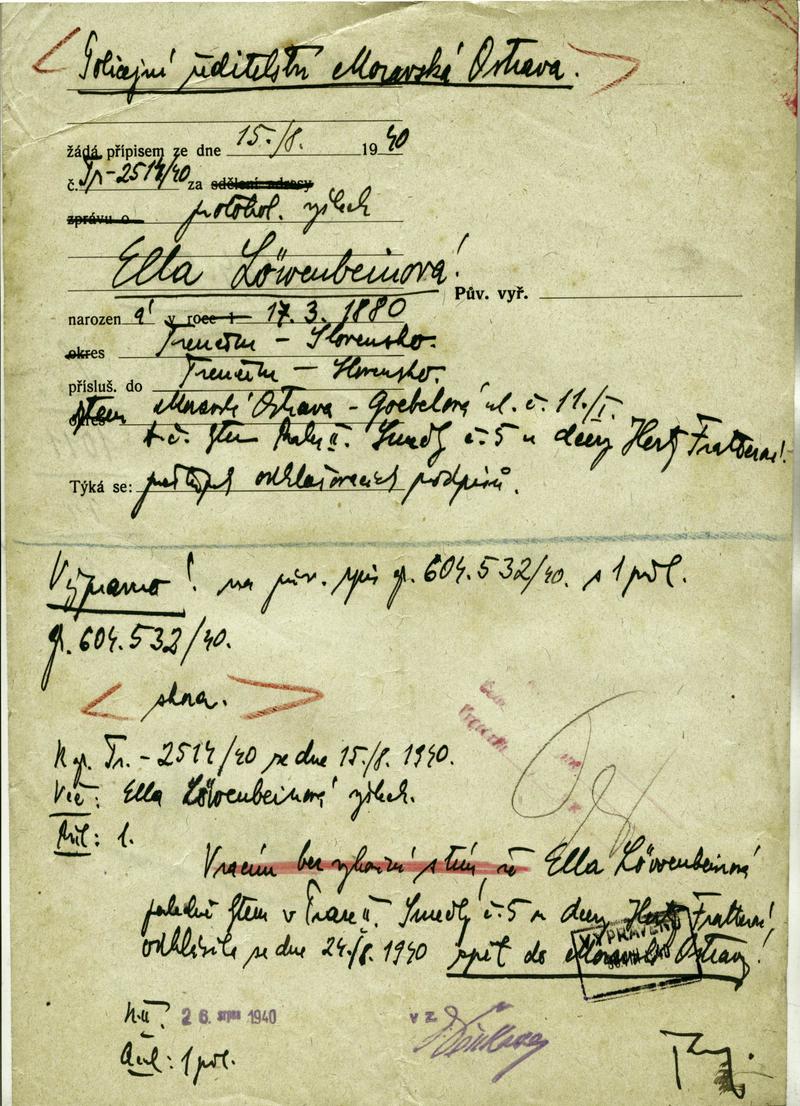 Policejní ředitelství Moravská Ostrava.
žádá přípisem ze dne 15./8. 1940
č. Tr-2514/40 za sdělení adresy
zprávu o protokol. výslech
Ella Löwenbeinová!
Pův. vyř.
narozen á v roce 17. 3. 1880
okres Trenčín - Slovensko.
přísluš. do Trenčín - Slovensko.
okres Moravská Ostrava - Goebelová ul. č. 11./I.
t. č. Praha II. Smečky č. 5 u dcery
Týká se: odhlašovacích podpisů.
Výpravno! na pův. spis 604.532/40. s 1 příl.
604.532/40.
shora.
K Tr. - 2514/40 ze dne 15./8. 1940.
Věc: Ella Löwenbeinová výslech.
Příl: 1.
Vracím bez vyřízení s tím, že Ella Löwenbeinová
posledně v Praze II. Smečky č. 5 u dcery
odhlásila se dne 24./8. 1940 zpět do Moravské Ostravy!
26. srpna 1940
v z
1 pol.